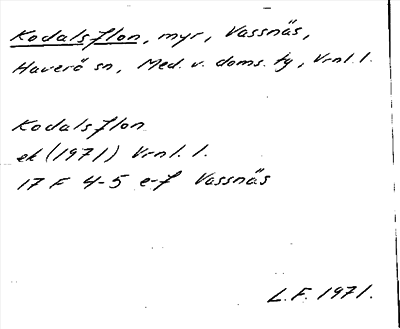 Kodalsflon, myr, Vassnäs,
Haverö sn, Med. v. doms. tg, Vrnl. l.
Kodalsflon
ek (1971) Vrnl. l.
17 F 4-5 e-f Vassnäs
L.F. 1971.